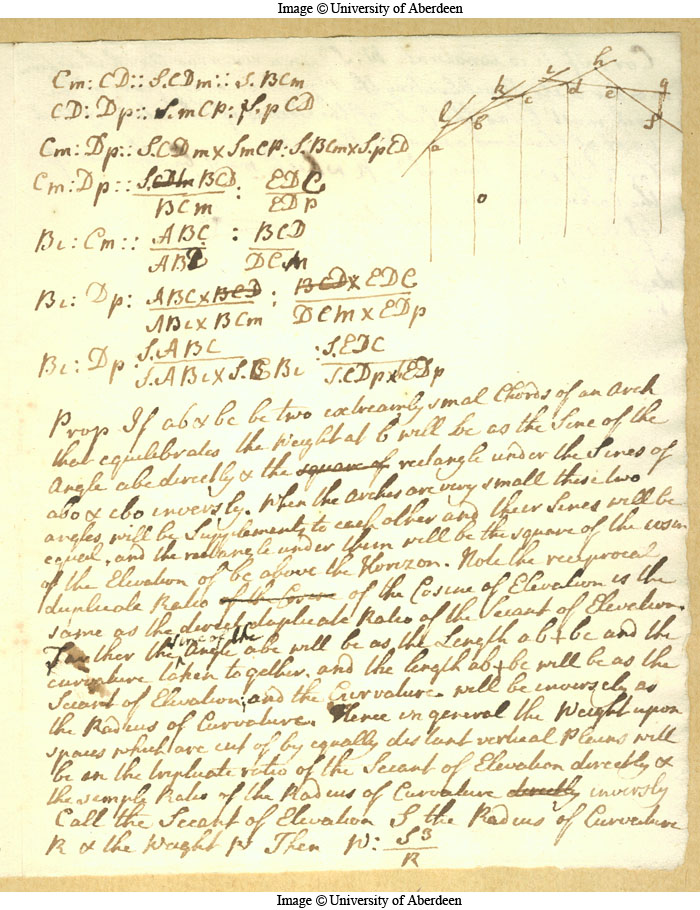 Image © University of Aberdeen
Cm: CD:: S.CDm:: S. BCm
CD: Dp:: S.mCP: S.pCD
Cm: Dp:: S.CDm x SmCP: S.BCm x S.pCD
Cm: Dp:: BCD / BCm : EDC / EDp
Bc: Cm:: ABC / AB : BCD / DCm
Bc: Dp: ABC x BCD / ABc x BCm : BCD x EDC / DCm x EDp
Bc: Dp: S.ABC / S.ABc x S. Bc : S.EDC / S.CDp x EDp
a l b k c i d h e g f
o
Prop If ab & bc be two extreamly smal Chords of an Arch
that equilibrates the Weight at b will be as the Sine of the
Angle abc directly & the square of rectangle under the Sines of
abo & cbo inversly. When the Arches are very small these two
angles will be Supplements to each other and their Sines will be
equal, and the rectangle under them will be the square of the cosin
of the Elevation of bc above the Horizon. Note the reciprocal
duplicate Ratio of the Cosine of the Cosine of Elevation is the
same as the direct duplicate Ratio of the Secant of Elevation.
Farther the sine of the Angle abc will be as the Length ab + bc and the
curvature taken together. and the length ab + bc will be as the
Secant of Elevation; and the Curvature will be inversely as
the Radius of Curvature. Hence in general the Weight upon
spaces which are cut of by equally distant vertical Plains will
be in the triplicate ratio of the Secant of Elevation directly &
the simple Ratio of the Radius of Curvature directly inversly
Call the Secant of Elevation S the Radius of Curvature
R & the Weight W Then W: S3 / R
Image © University of Aberdeen